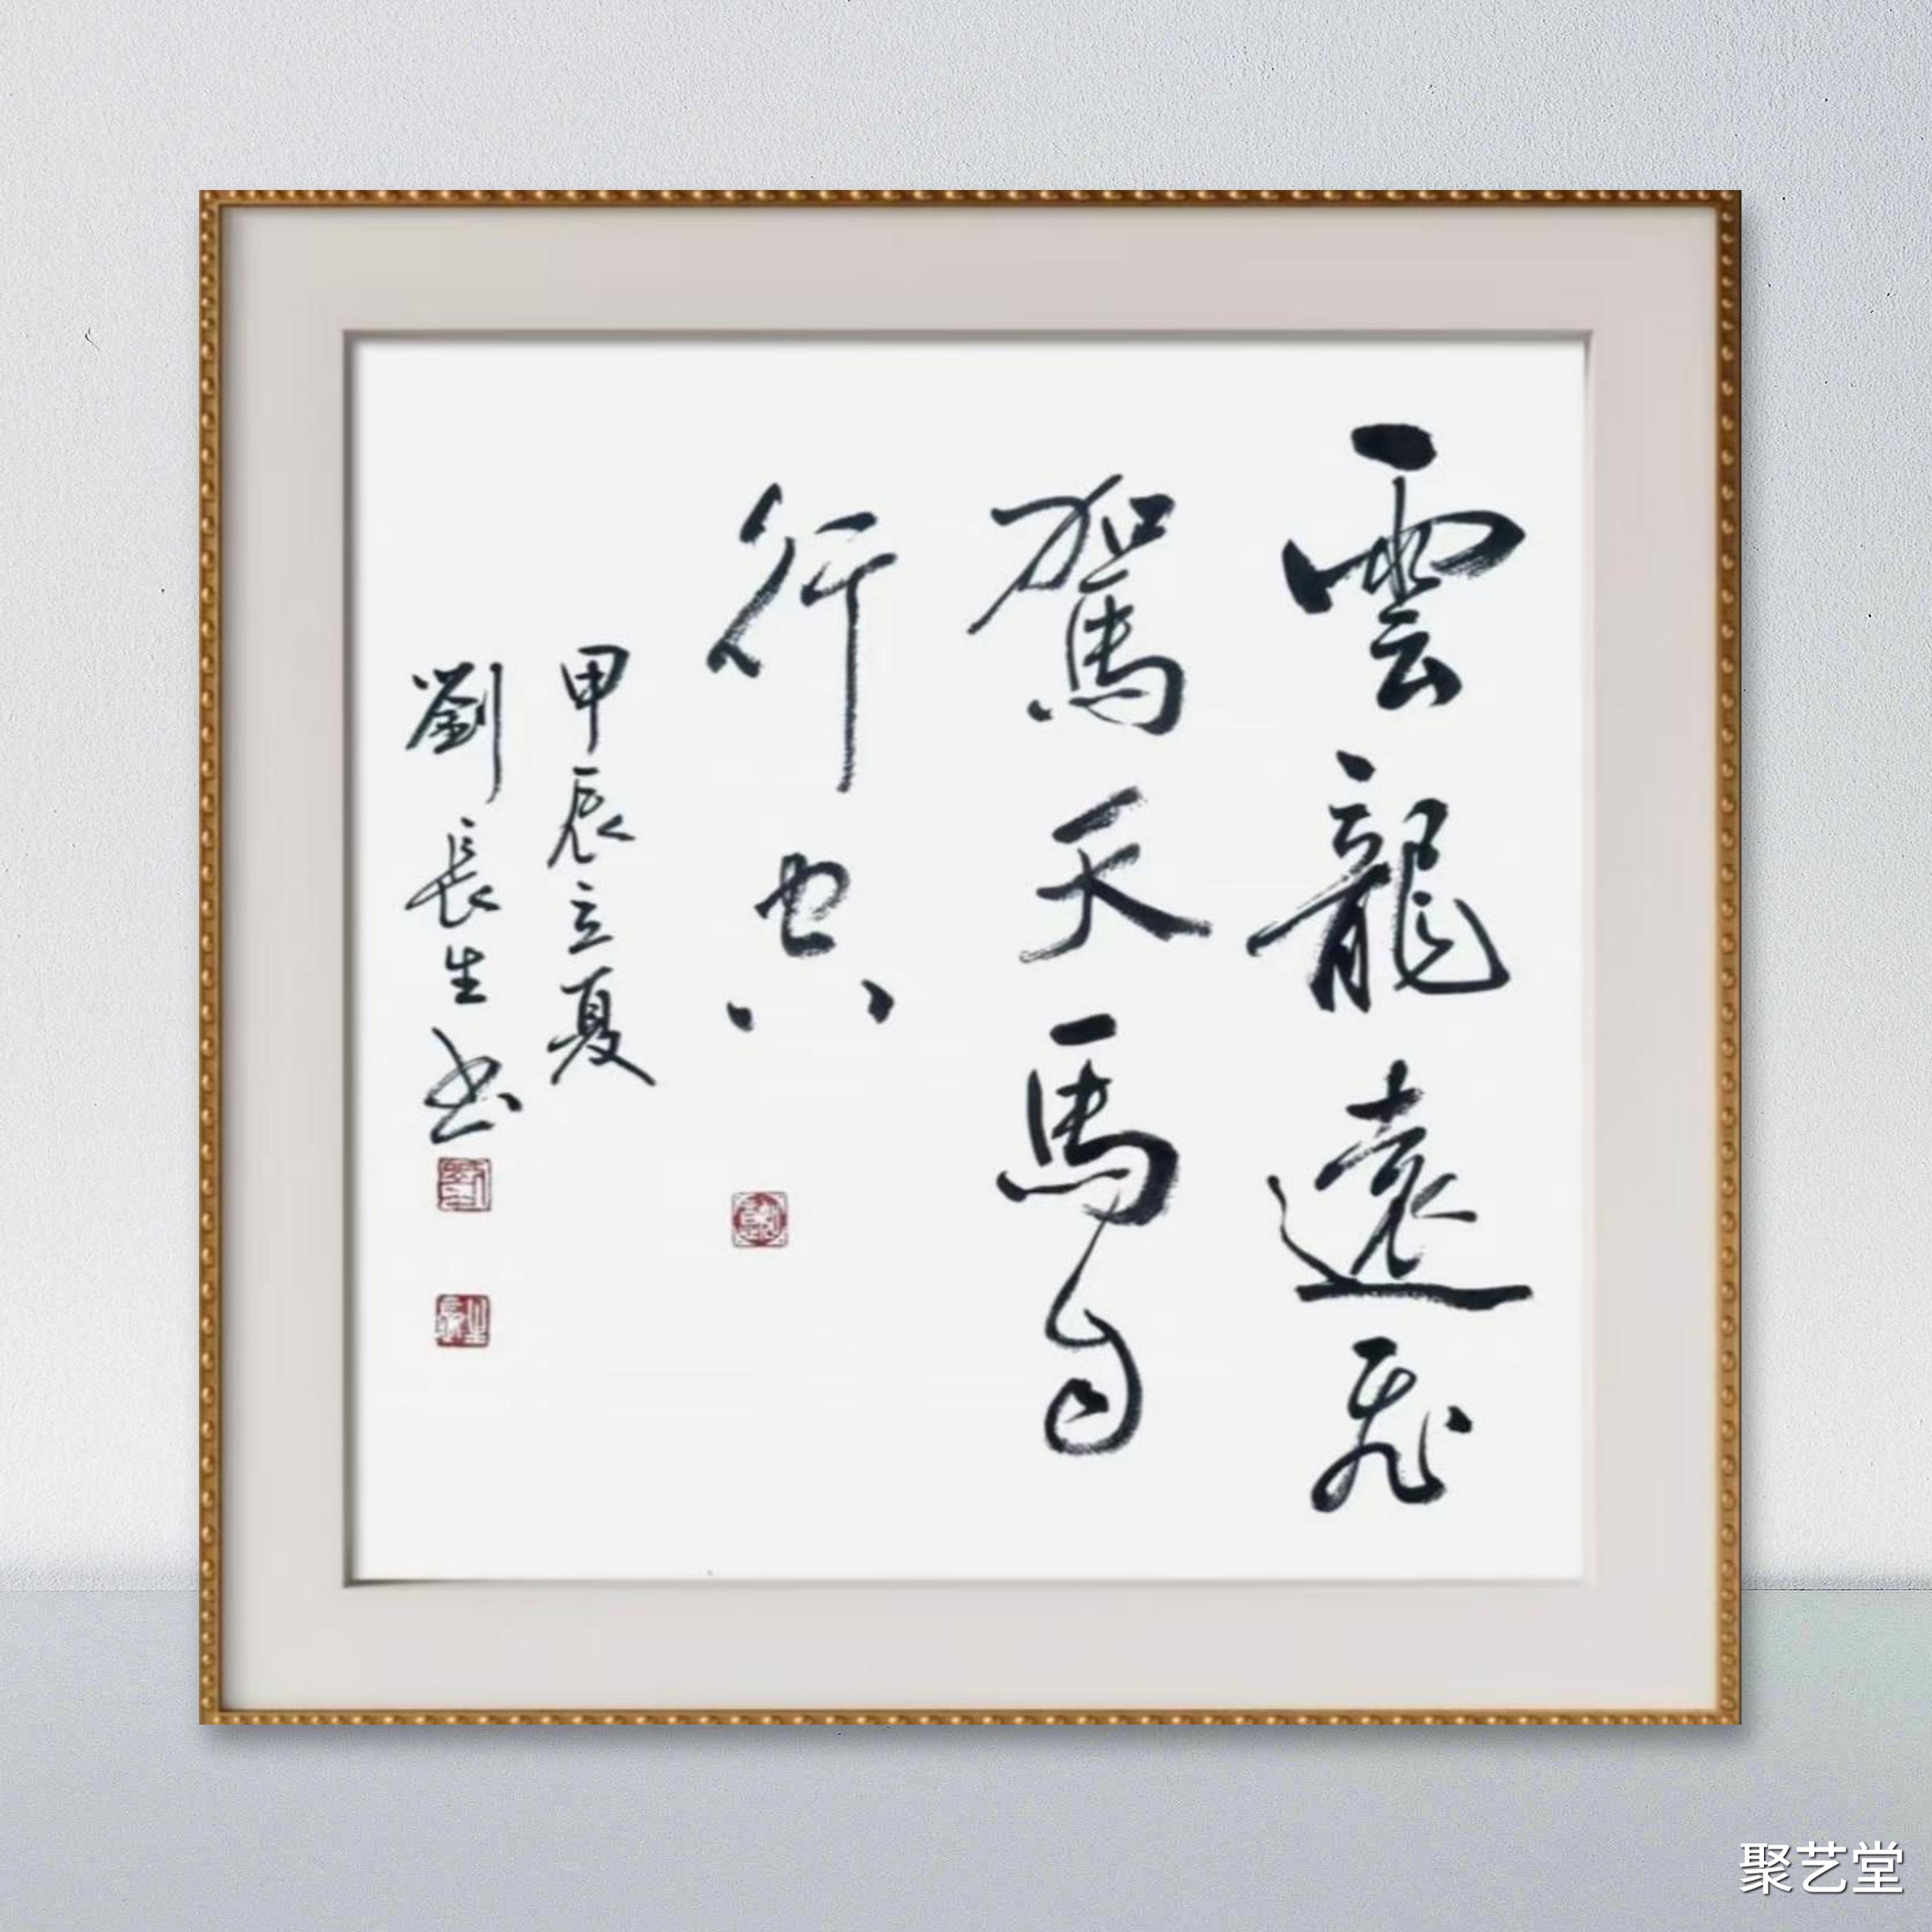 雲龍遠飛
駕天馬自
行空
甲辰立夏
劉長生书
長生
聚艺堂